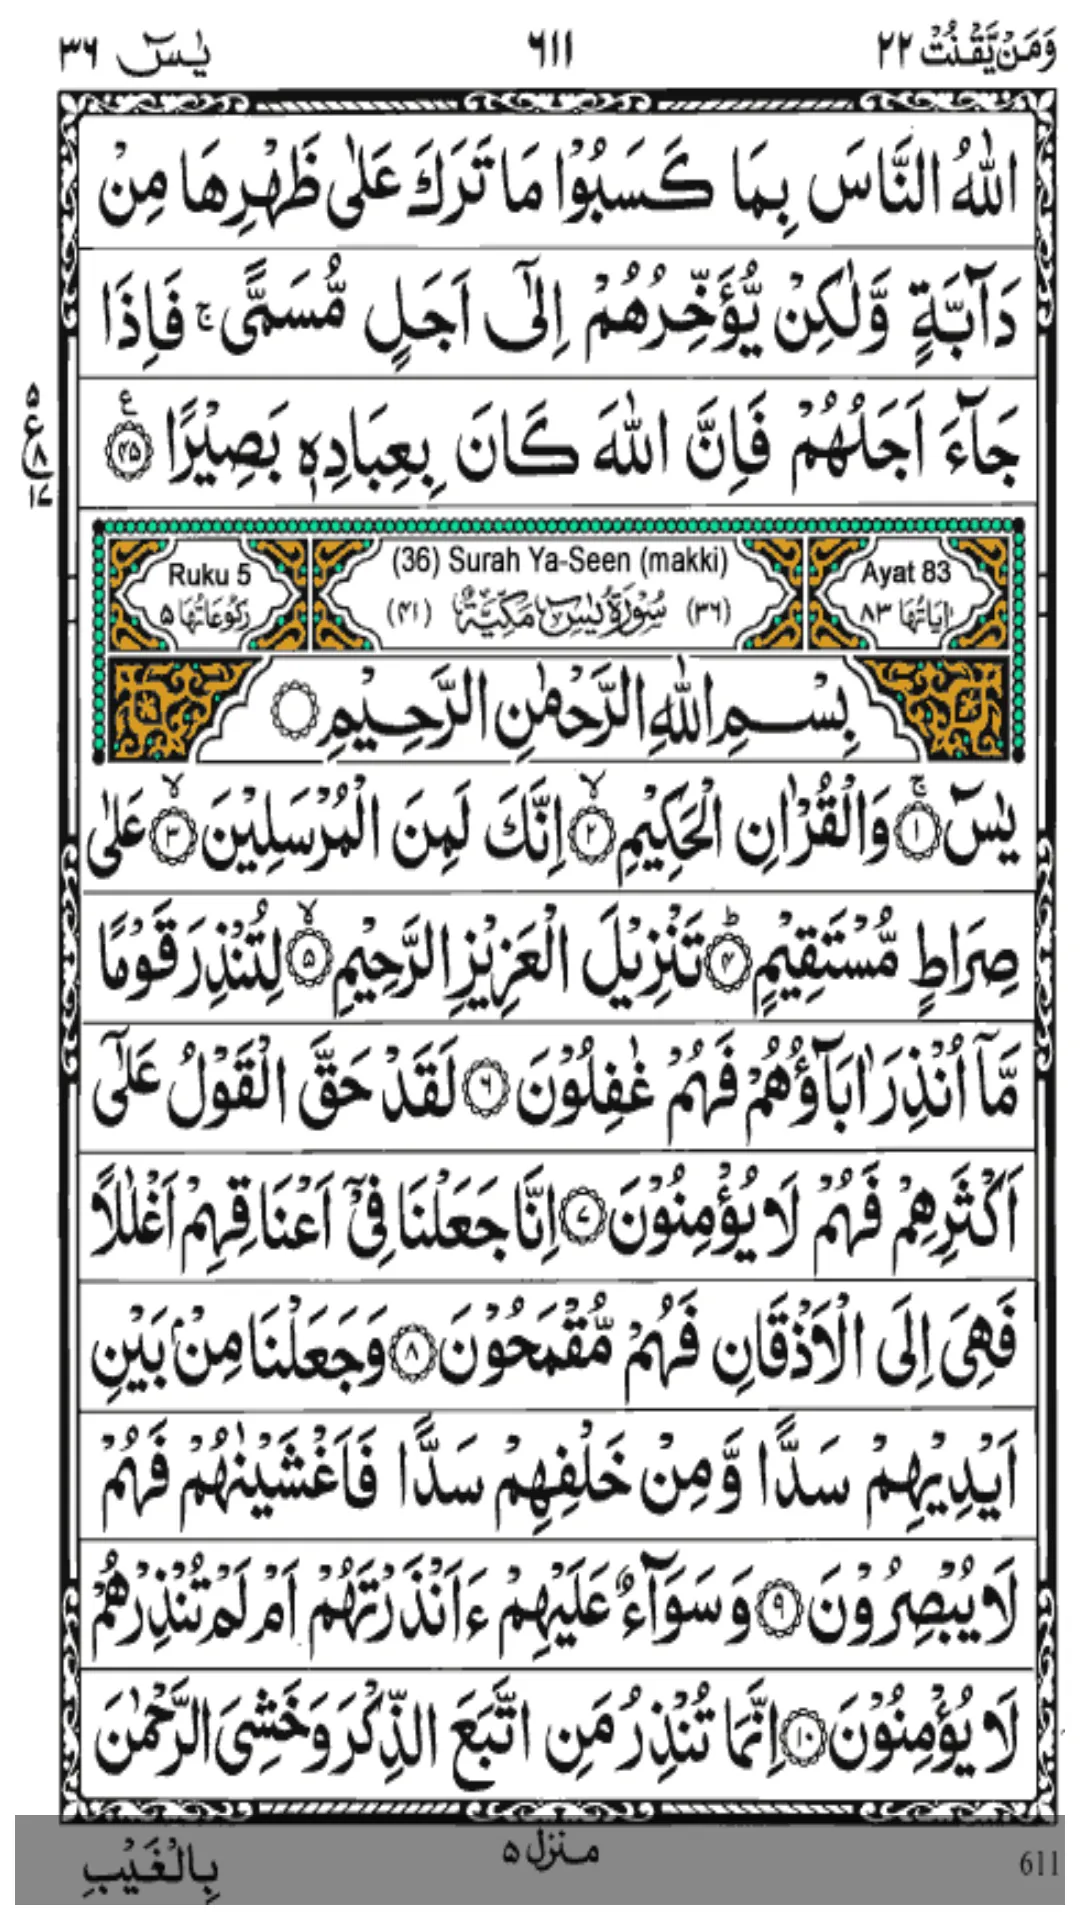 وَمَنْ يَّقْنُتْ ٢٢ ٦١١ يٰسٓ ٣٦
اللّٰهُ النَّاسَ بِمَا كَسَبُوْا مَا تَرَكَ عَلٰى ظَهْرِهَا مِنْ
دَآبَّةٍ وَّلٰكِنْ يُّؤَخِّرُهُمْ اِلٰٓى اَجَلٍ مُّسَمًّى ۚ فَاِذَا
جَآءَ اَجَلُهُمْ فَاِنَّ اللّٰهَ كَانَ بِعِبَادِهٖ بَصِيْرًا ﴿٤٥﴾ ع
٥
ع
٨
١٧
Ayat 83 (36) Surah Ya-Seen (makki) Ruku 5
اٰيَاتُهَا ٨٣ (٣٦) سُوْرَةُ يٰسٓ مَكِّيَّةٌ (٤١) رُكُوْعَاتُهَا ٥
بِسْمِ اللّٰهِ الرَّحْمٰنِ الرَّحِيْمِ
يٰسٓ ۚ ﴿١﴾ وَالْقُرْاٰنِ الْحَكِيْمِ ۙ ﴿٢﴾ اِنَّكَ لَمِنَ الْمُرْسَلِيْنَ ۙ ﴿٣﴾ عَلٰى
صِرَاطٍ مُّسْتَقِيْمٍ ؕ ﴿٤﴾ تَنْزِيْلَ الْعَزِيْزِ الرَّحِيْمِ ۙ ﴿٥﴾ لِتُنْذِرَ قَوْمًا
مَّآ اُنْذِرَ اٰبَآؤُهُمْ فَهُمْ غٰفِلُوْنَ ﴿٦﴾ لَقَدْ حَقَّ الْقَوْلُ عَلٰٓى
اَكْثَرِهِمْ فَهُمْ لَا يُؤْمِنُوْنَ ﴿٧﴾ اِنَّا جَعَلْنَا فِيْٓ اَعْنَاقِهِمْ اَغْلٰلًا
فَهِيَ اِلَى الْاَذْقَانِ فَهُمْ مُّقْمَحُوْنَ ﴿٨﴾ وَجَعَلْنَا مِنْۢ بَيْنِ
اَيْدِيْهِمْ سَدًّا وَّمِنْ خَلْفِهِمْ سَدًّا فَاَغْشَيْنٰهُمْ فَهُمْ
لَا يُبْصِرُوْنَ ﴿٩﴾ وَسَوَآءٌ عَلَيْهِمْ ءَاَنْذَرْتَهُمْ اَمْ لَمْ تُنْذِرْهُمْ
لَا يُؤْمِنُوْنَ ﴿١٠﴾ اِنَّمَا تُنْذِرُ مَنِ اتَّبَعَ الذِّكْرَ وَخَشِيَ الرَّحْمٰنَ
611 منزل ٥ بِالْغَيْبِ